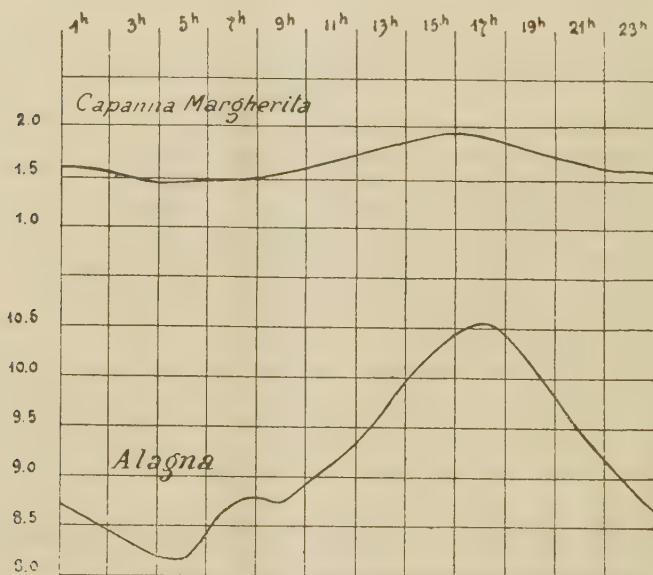 1h 3h 5h 7h 9h 11h 13h 15h 17h 19h 21h 23h
Capanna Margherita
2.0
1.5
1.0
10.5
10.0
9.5
Alagna
9.0
8.5
8.0